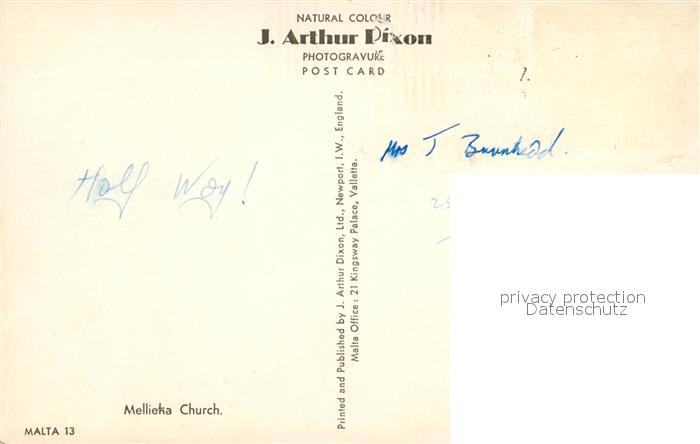 NATURAL COLOUR
J. Arthur Dixon
PHOTOGRAVURE
POST CARD
Half Way!
Mellieħa Church.
MALTA 13
Printed and Published by J. Arthur Dixon, Ltd., Newport, I.W., England.
Malta Office: 21 Kingsway Palace, Valletta.
Mrs T
privacy protection
Datenschutz